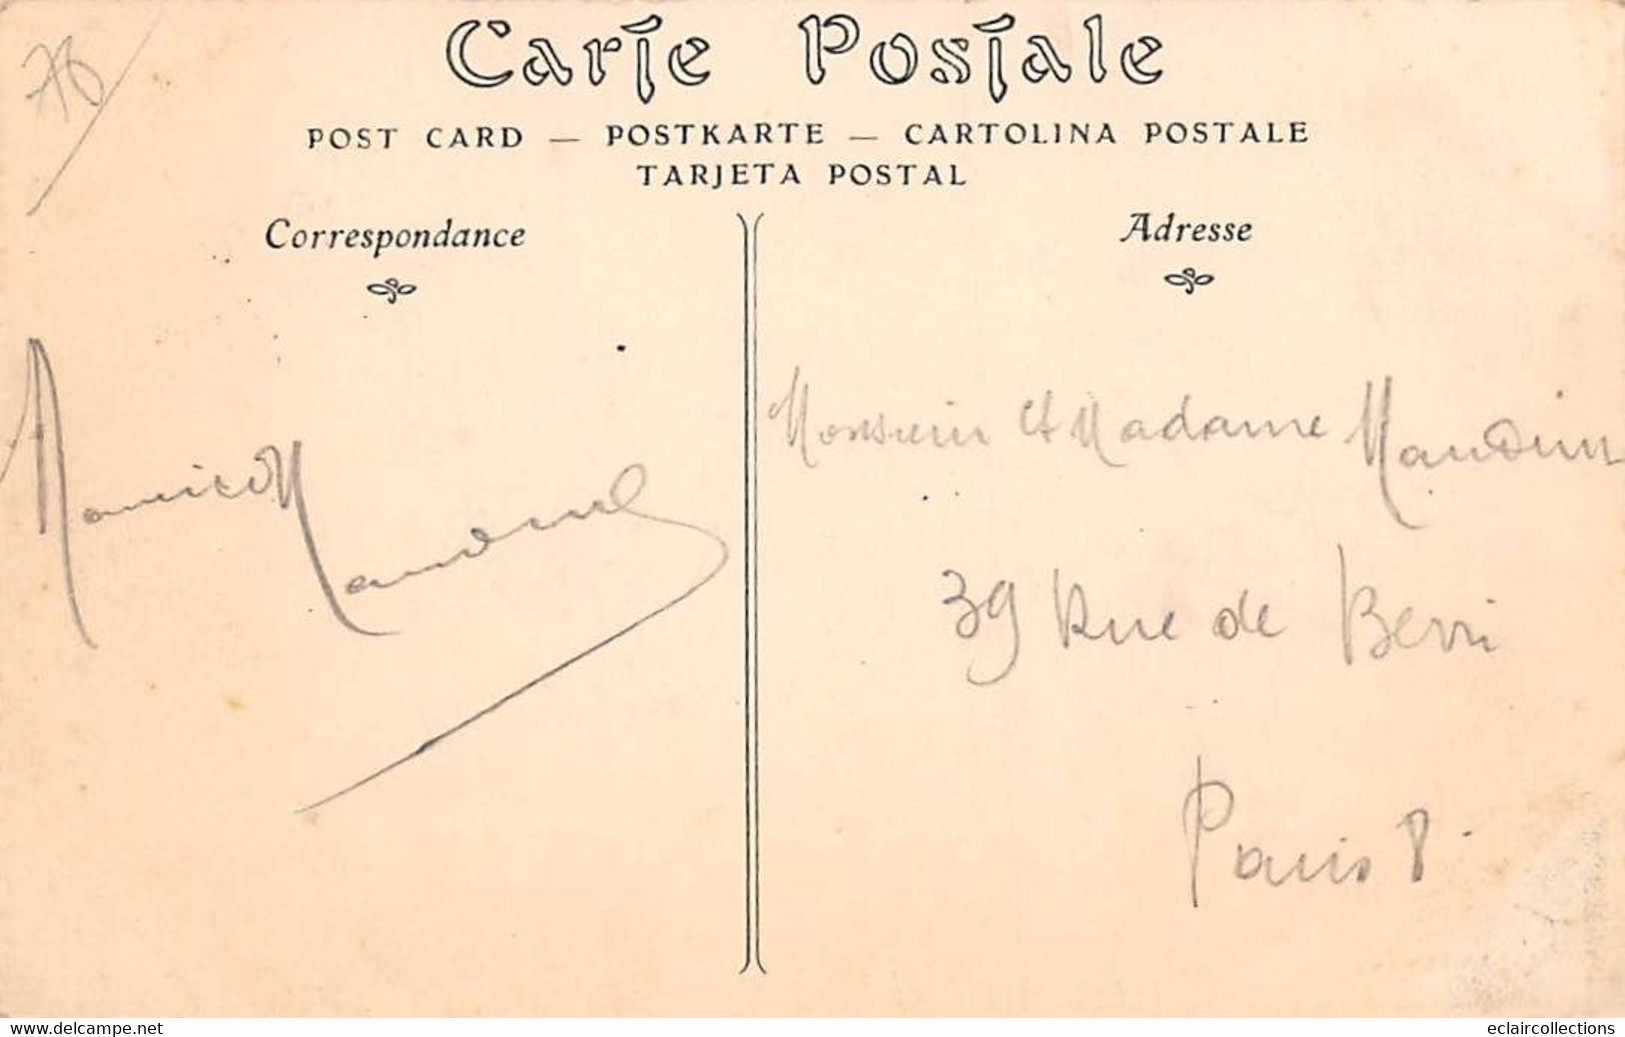 76
Carte Postale
POST CARD — POSTKARTE — CARTOLINA POSTALE
TARJETA POSTAL
Correspondance
Adresse
Monsieur et Madame Maudin
39 Rue de Berri
Paris 8
www.delcampe.net
eclaircollections